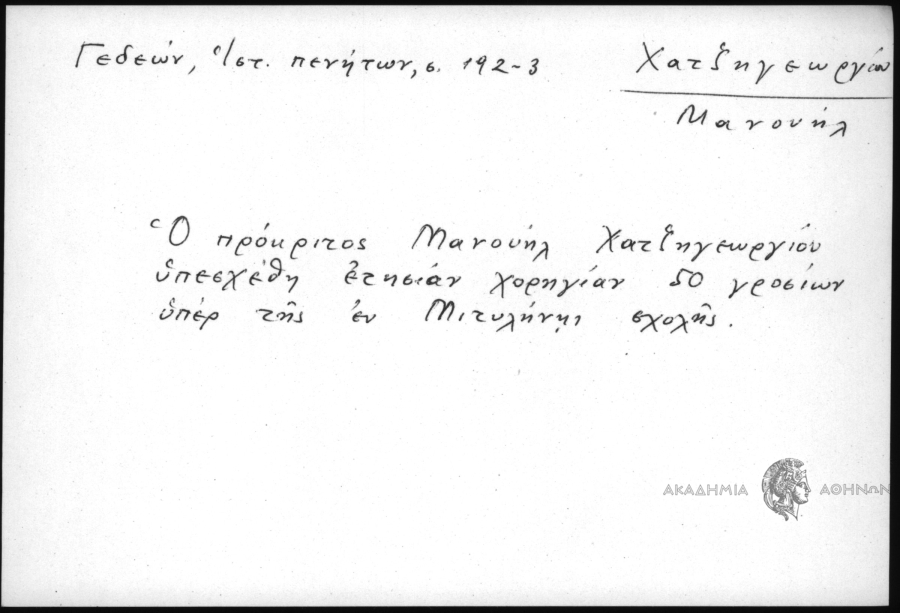 Γεδεών, Ἱστ. πενήτων, σ. 192-3
Χατζηγεωργίου
Μανουήλ
Ὁ πρόκριτος Μανουήλ Χατζηγεωργίου
ὑπεσχέθη ἐτησίαν χορηγίαν 50 γροσίων
ὑπέρ τῆς ἐν Μιτυλήνηι σχολῆς.
ΑΚΑΔΗΜΙΑ ΑΘΗΝΩΝ